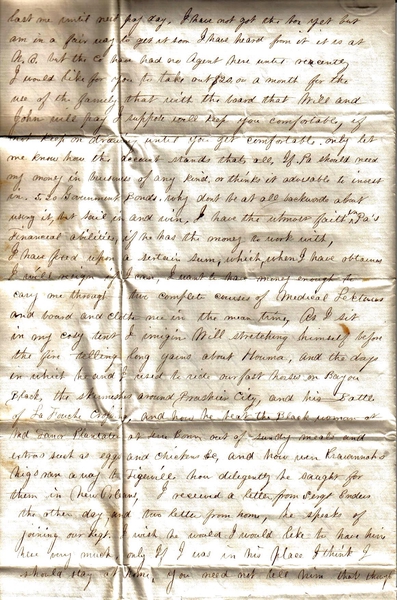 last me until next pay day. I have not got the box yet but
am in a fair way to get it soon I have heard from it it is at
but the Co have had no Agent there until recently
I would like for you to take out $20 on a month for the
use of the family that with the board that Will and
John will pay I suppose will keep you comfortable, if
not keep on drawing until you get comfortable. only let
me know how the account stands thats all. If Pa should need
my money in business of any kind, or thinks it advisable to invest
in 5.20 Government Bonds. why dont be at all backwards about
using it, but sail in and win. I have the utmost faith in Pa's
Financial abilities, if he has the money to work with,
I have fixed upon a certain sum, which, when I have obtained
I will resign if I can, I want to have money enough to
cary me through two complete courses of Medical Lectures
and board and clothe me in the mean time, As I sit
in my cosy tent I imigin Will stretching himself before
the fire telling long yarns about Houma, and the days
in which he and I used to ride our fast horses on Bayou
Black, the skirmishes around Brashier City, and his Battle
of La Fouche and how he beat the Black woman at
Plantation out of sundry meals and
extras such as eggs and chickens &c, and how
ran a way to how diligently he saught for
them in New Orleans, I received a letter from Sergt
the other day, and two letter from home, he speaks of
joining our Regt. I wish he would I would like to have him
here very much only If I was in his place I think I
should stay at home, you need not tell him that though